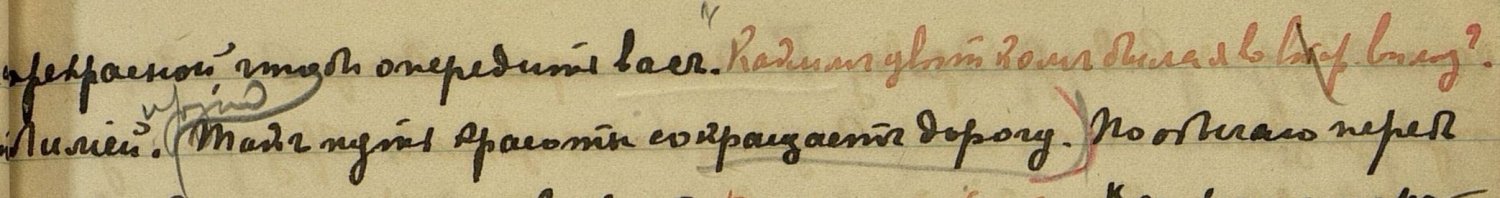 прекрасной чтобъ опередить васъ. Какимъ цвѣткомъ была я во
Лилией. (Такъ путь красоты сокращаетъ дорогу.) По обычаю передъ